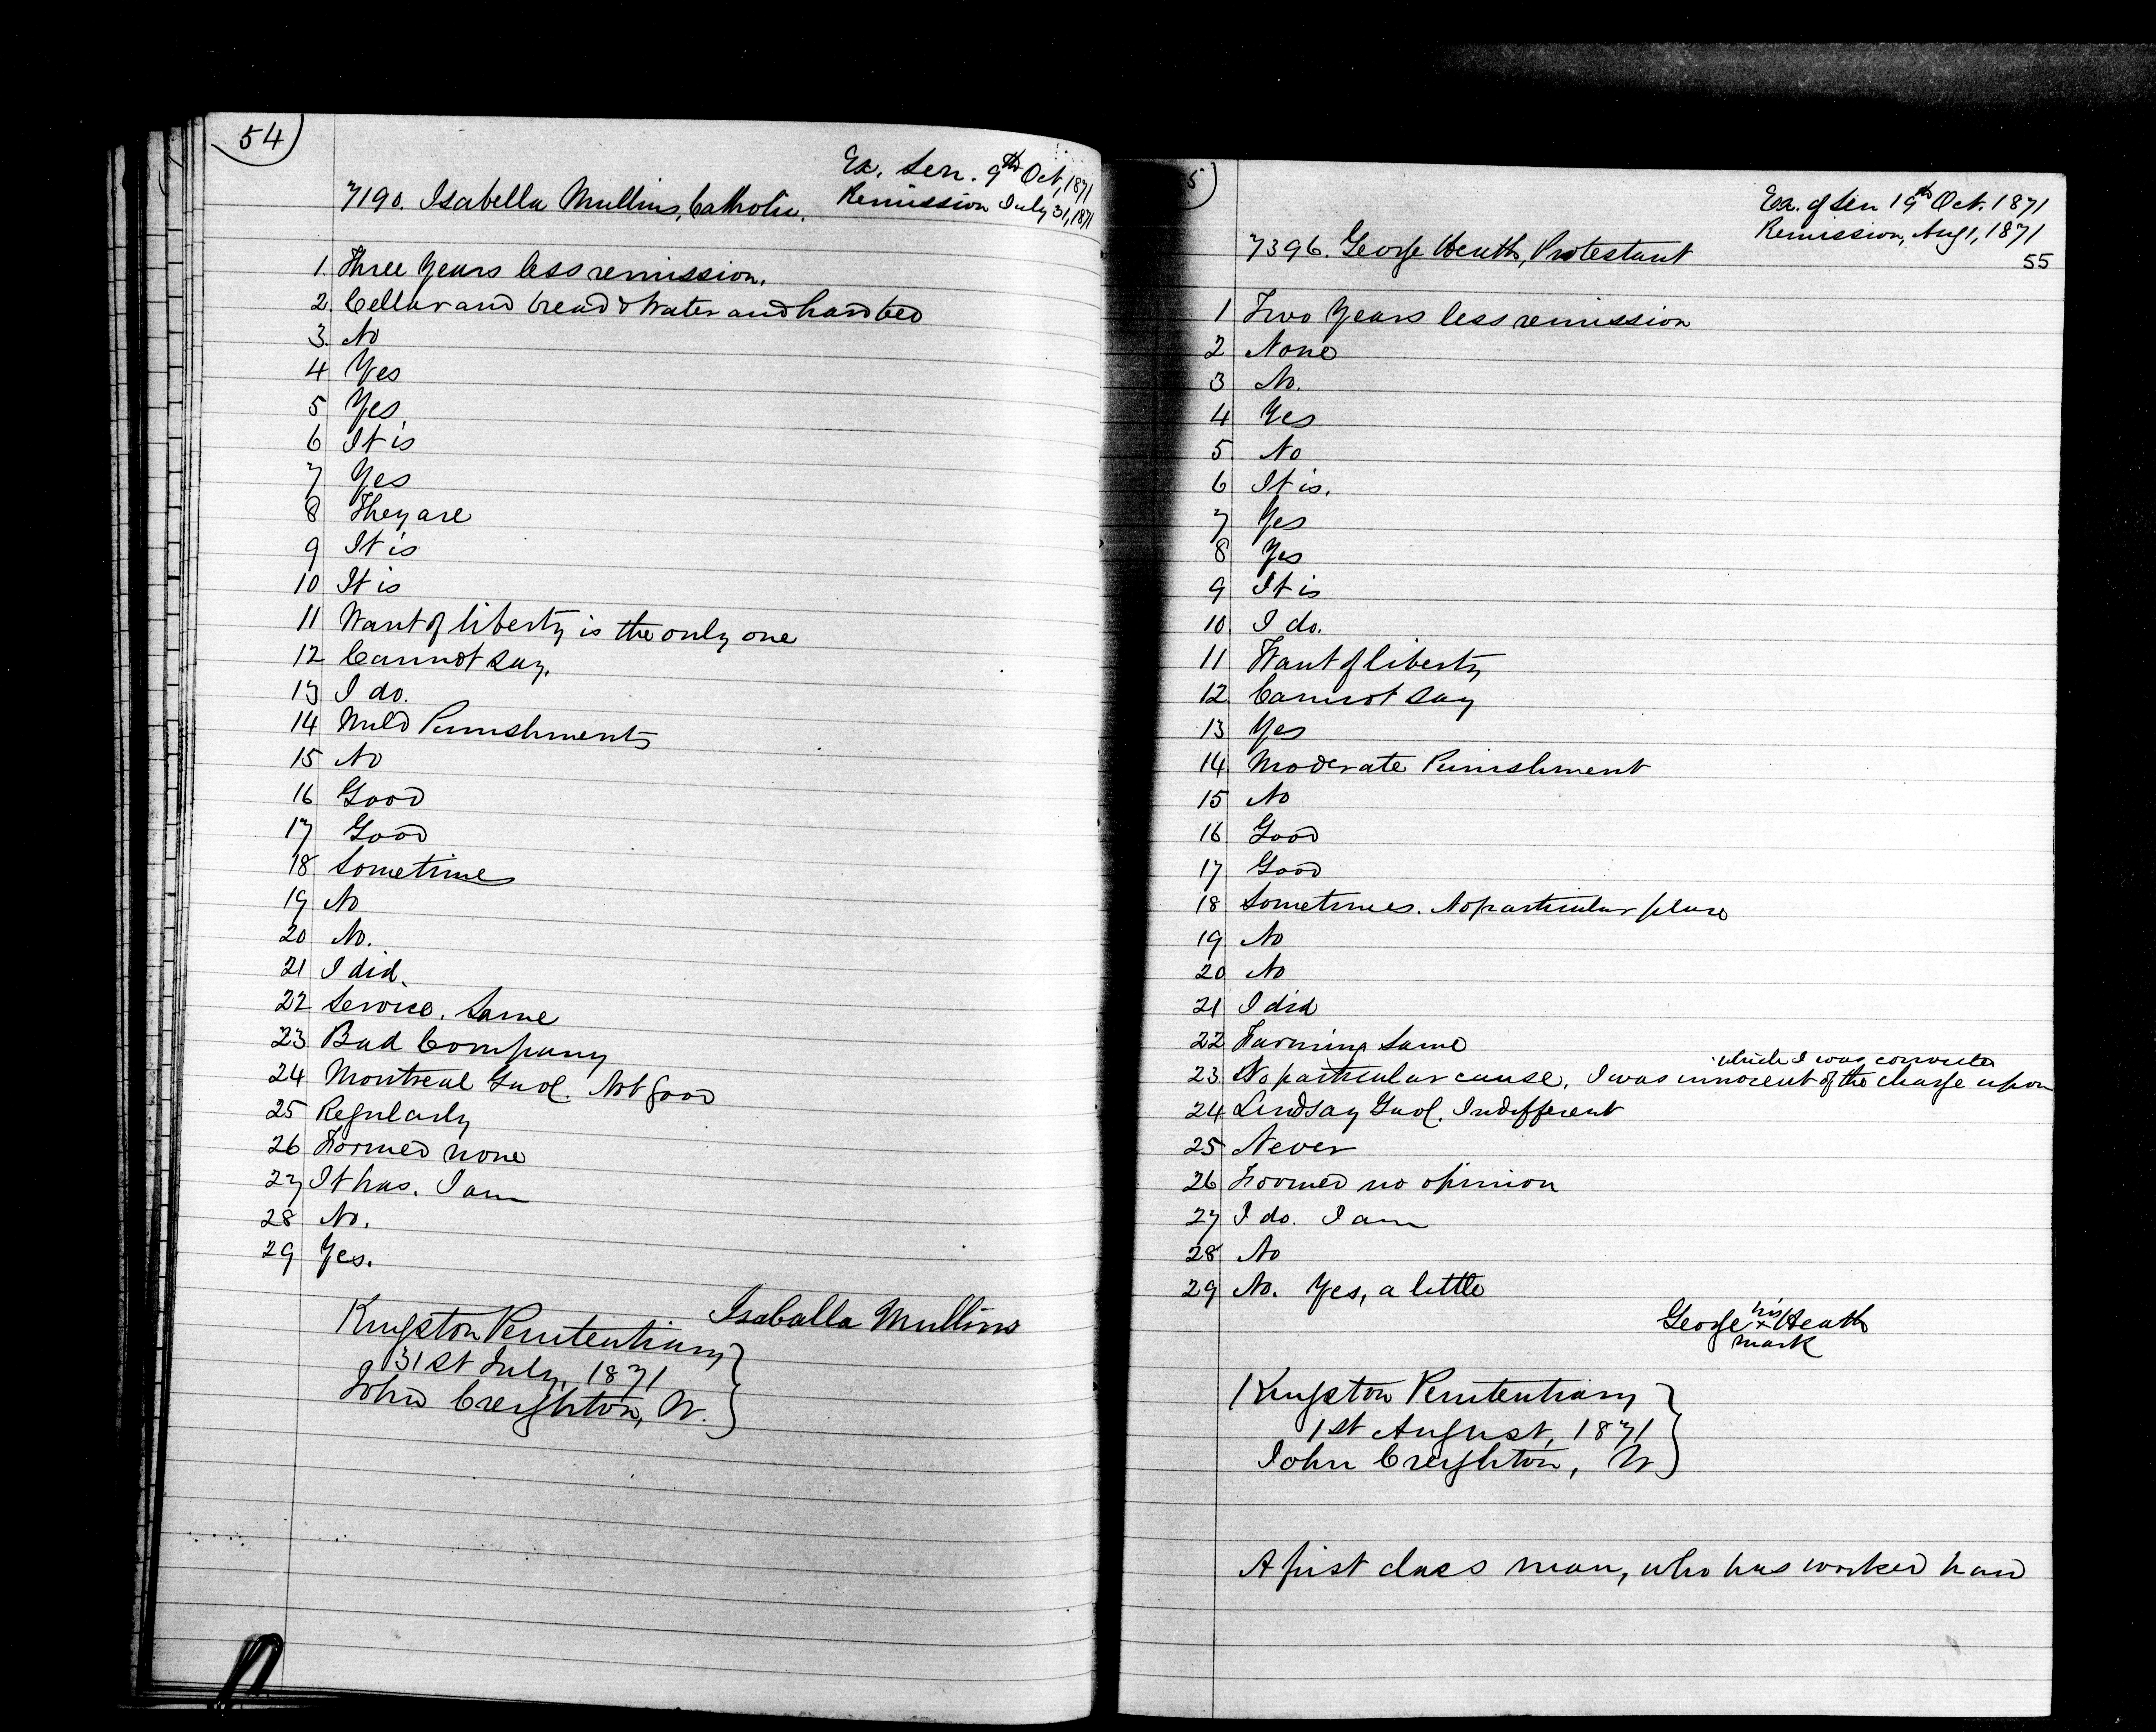 54
Ex. Sen. 9th Oct, 1871
7190. Isabella Mullins, Catholic. Remission July 31, 1871
1. Three Years less remission.
2 Cellar and bread & Water and hard bed
3. No
4 Yes
5 Yes
6 It is
7 Yes
8 They are
9 It is
10 It is
11 Want of liberty is the only one
12 Cannot say.
13 I do.
14 Mild Punishments
15 No
16 Good
17 Good
18 Sometimes
19 No
20 No.
21 I did.
22 Service. Same
23 Bad Company
24 Montreal Gaol. Not Good
25 Regularly
26 Formed none
27 It has. I am
28 No.
29 Yes.
Isaballa Mullins
Kingston Penitentiary
31st July, 1871
John Creighton, W.
5
Ex. of Sen 19th Oct. 1871
Remission, Aug 1, 1871
7396. George Heath, Protestant
55
1 Two Years less remission
2 None
3 No.
4 Yes
5 No
6 It is.
7 Yes
8 Yes
9 It is
10 I do.
11 Want of liberty
12 Cannot say
13 Yes
14 Moderate Punishment
15 No
16 Good
17 Good
18 Sometimes. No particular place
19 No
20 No
21 I did
22 Farming Same
which I was convicted
23 No particular cause, I was innocent of the charge upon
24 Lindsay Gaol. Indifferent
25 Never
26 Formed no opinion
27 I do. I am
28 No
29 No. Yes, a little
his
George x Heath
mark
Kingston Penitentiary
1st August, 1871
John Creighton, W
A first class man, who has worked hard